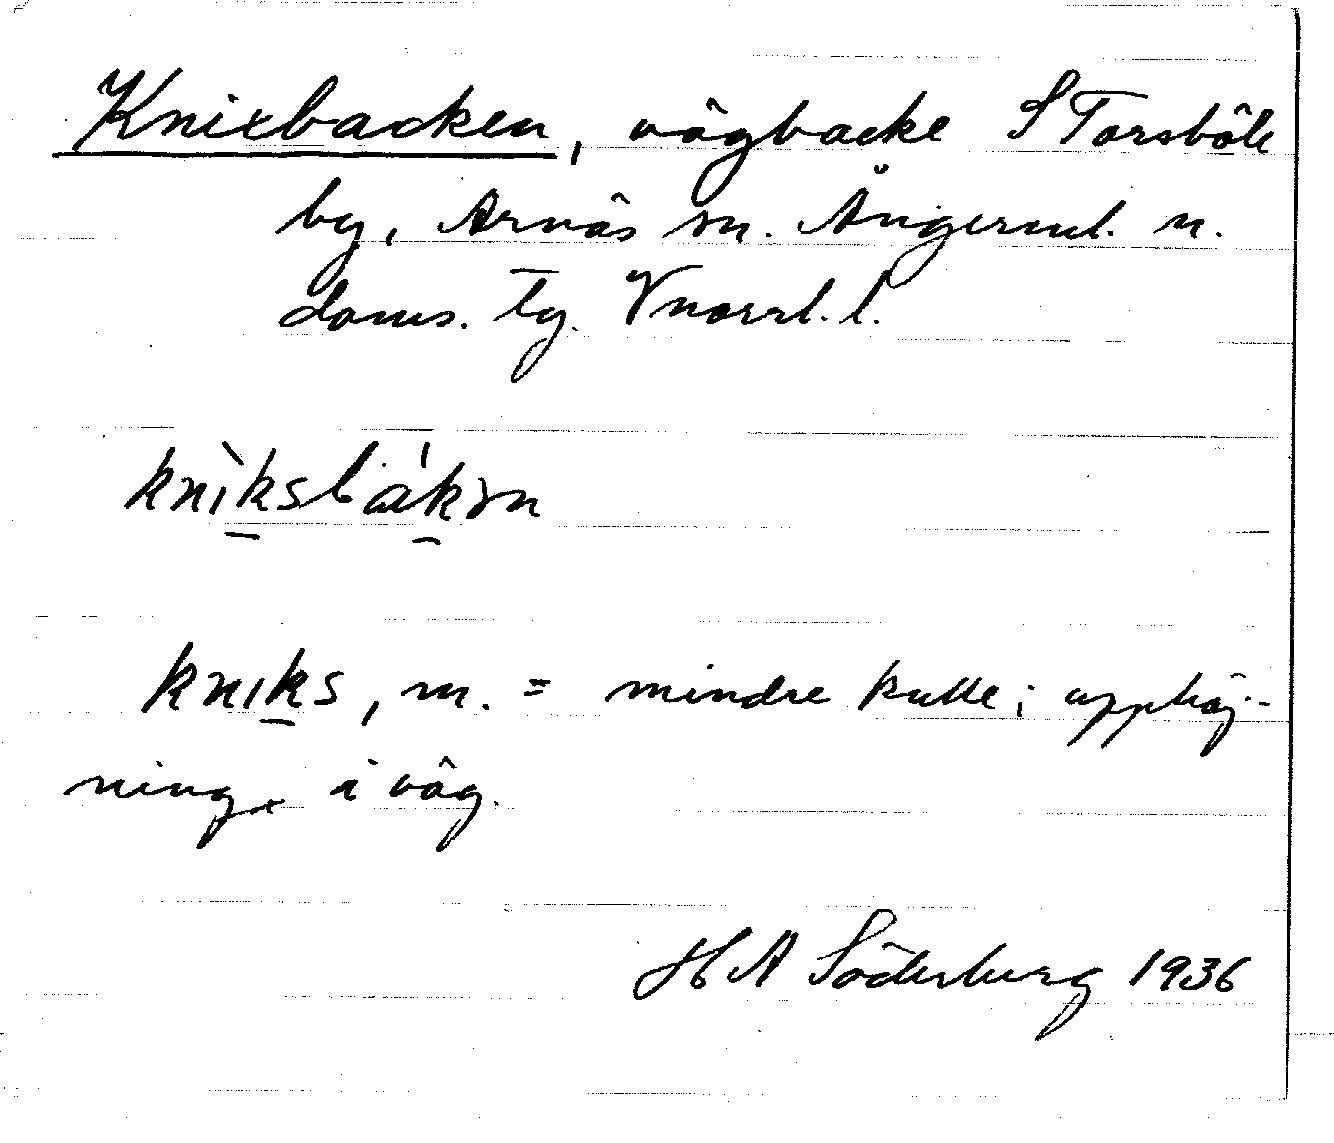 Knixbacken, vägbacke S Torsböle
by, Arnäs sn. Ångerml. n.
doms. Tg. Vnorrl. l.
knìksbákən
knɩks, m. = mindre kulle; upphöj-
ning i väg.
H A Söderberg 1936